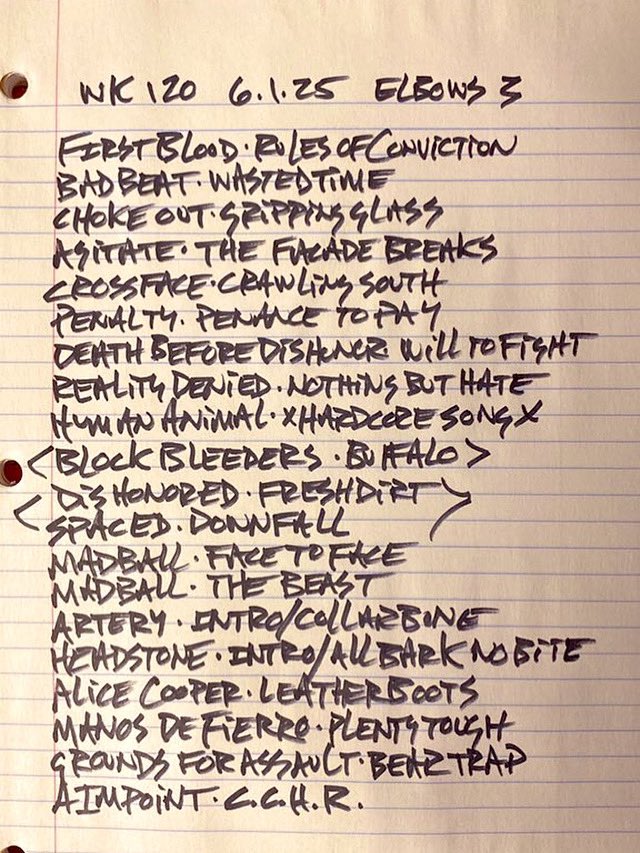 WK 120 6.1.25 ELBOWS 3
FIRST BLOOD · RULES OF CONVICTION
BAD BEAT · WASTED TIME
CHOKE OUT · GRIPPING GLASS
AGITATE · THE FACADE BREAKS
CROSSFACE · CRAWLING SOUTH
PENALTY · PENANCE TO PAY
DEATH BEFORE DISHONOR · WILL TO FIGHT
REALITY DENIED · NOTHING BUT HATE
HUMAN ANIMAL · XHARDCORE SONGX
<BLOCK BLEEDERS · BUFFALO>
<DISHONORED · FRESH DIRT>
<SPACED · DOWNFALL
MADBALL · FACE TO FACE
MADBALL · THE BEAST
ARTERY · INTRO/COLLARBONE
HEADSTONE · INTRO/ALL BARK NO BITE
ALICE COOPER · LEATHER BOOTS
MANOS DE FIERRO · PLENTY TOUGH
GROUNDS FOR ASSAULT · BEAR TRAP
AIMPOINT · C.C.H.R.